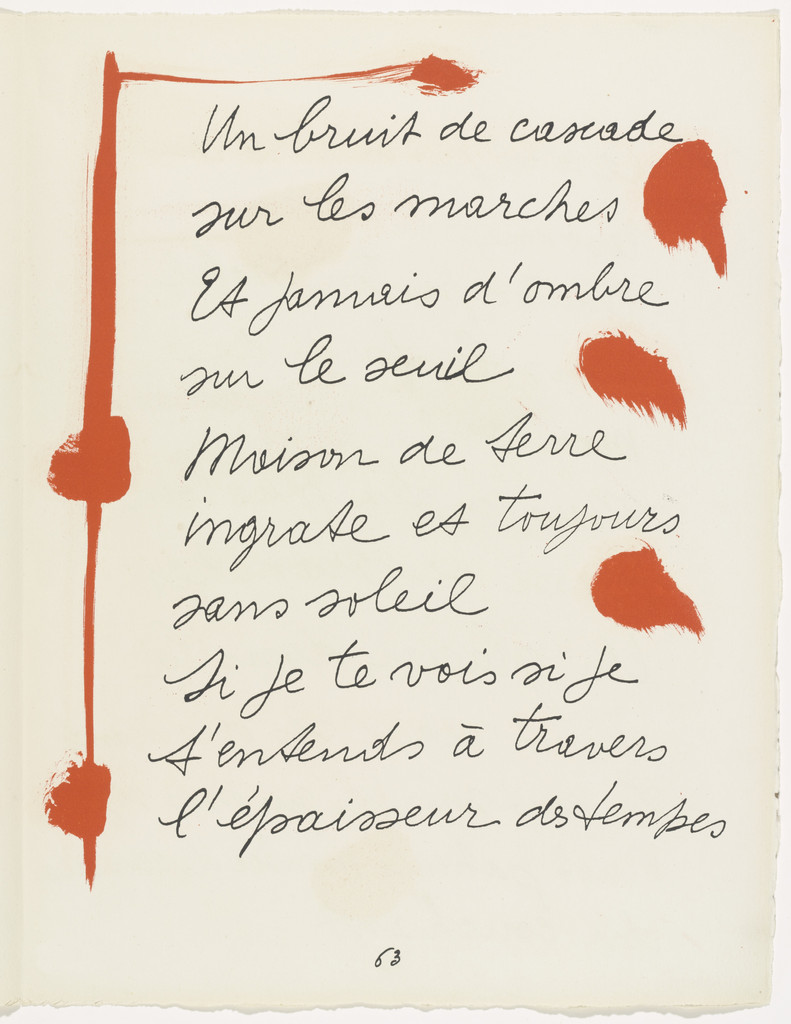 Un bruit de cascade
sur les marches
Et jamais d'ombre
sur le seuil
Maison de terre
ingrate et toujours
sans soleil
Si je te vois si je
t'entends à travers
l'épaisseur des tempes
63